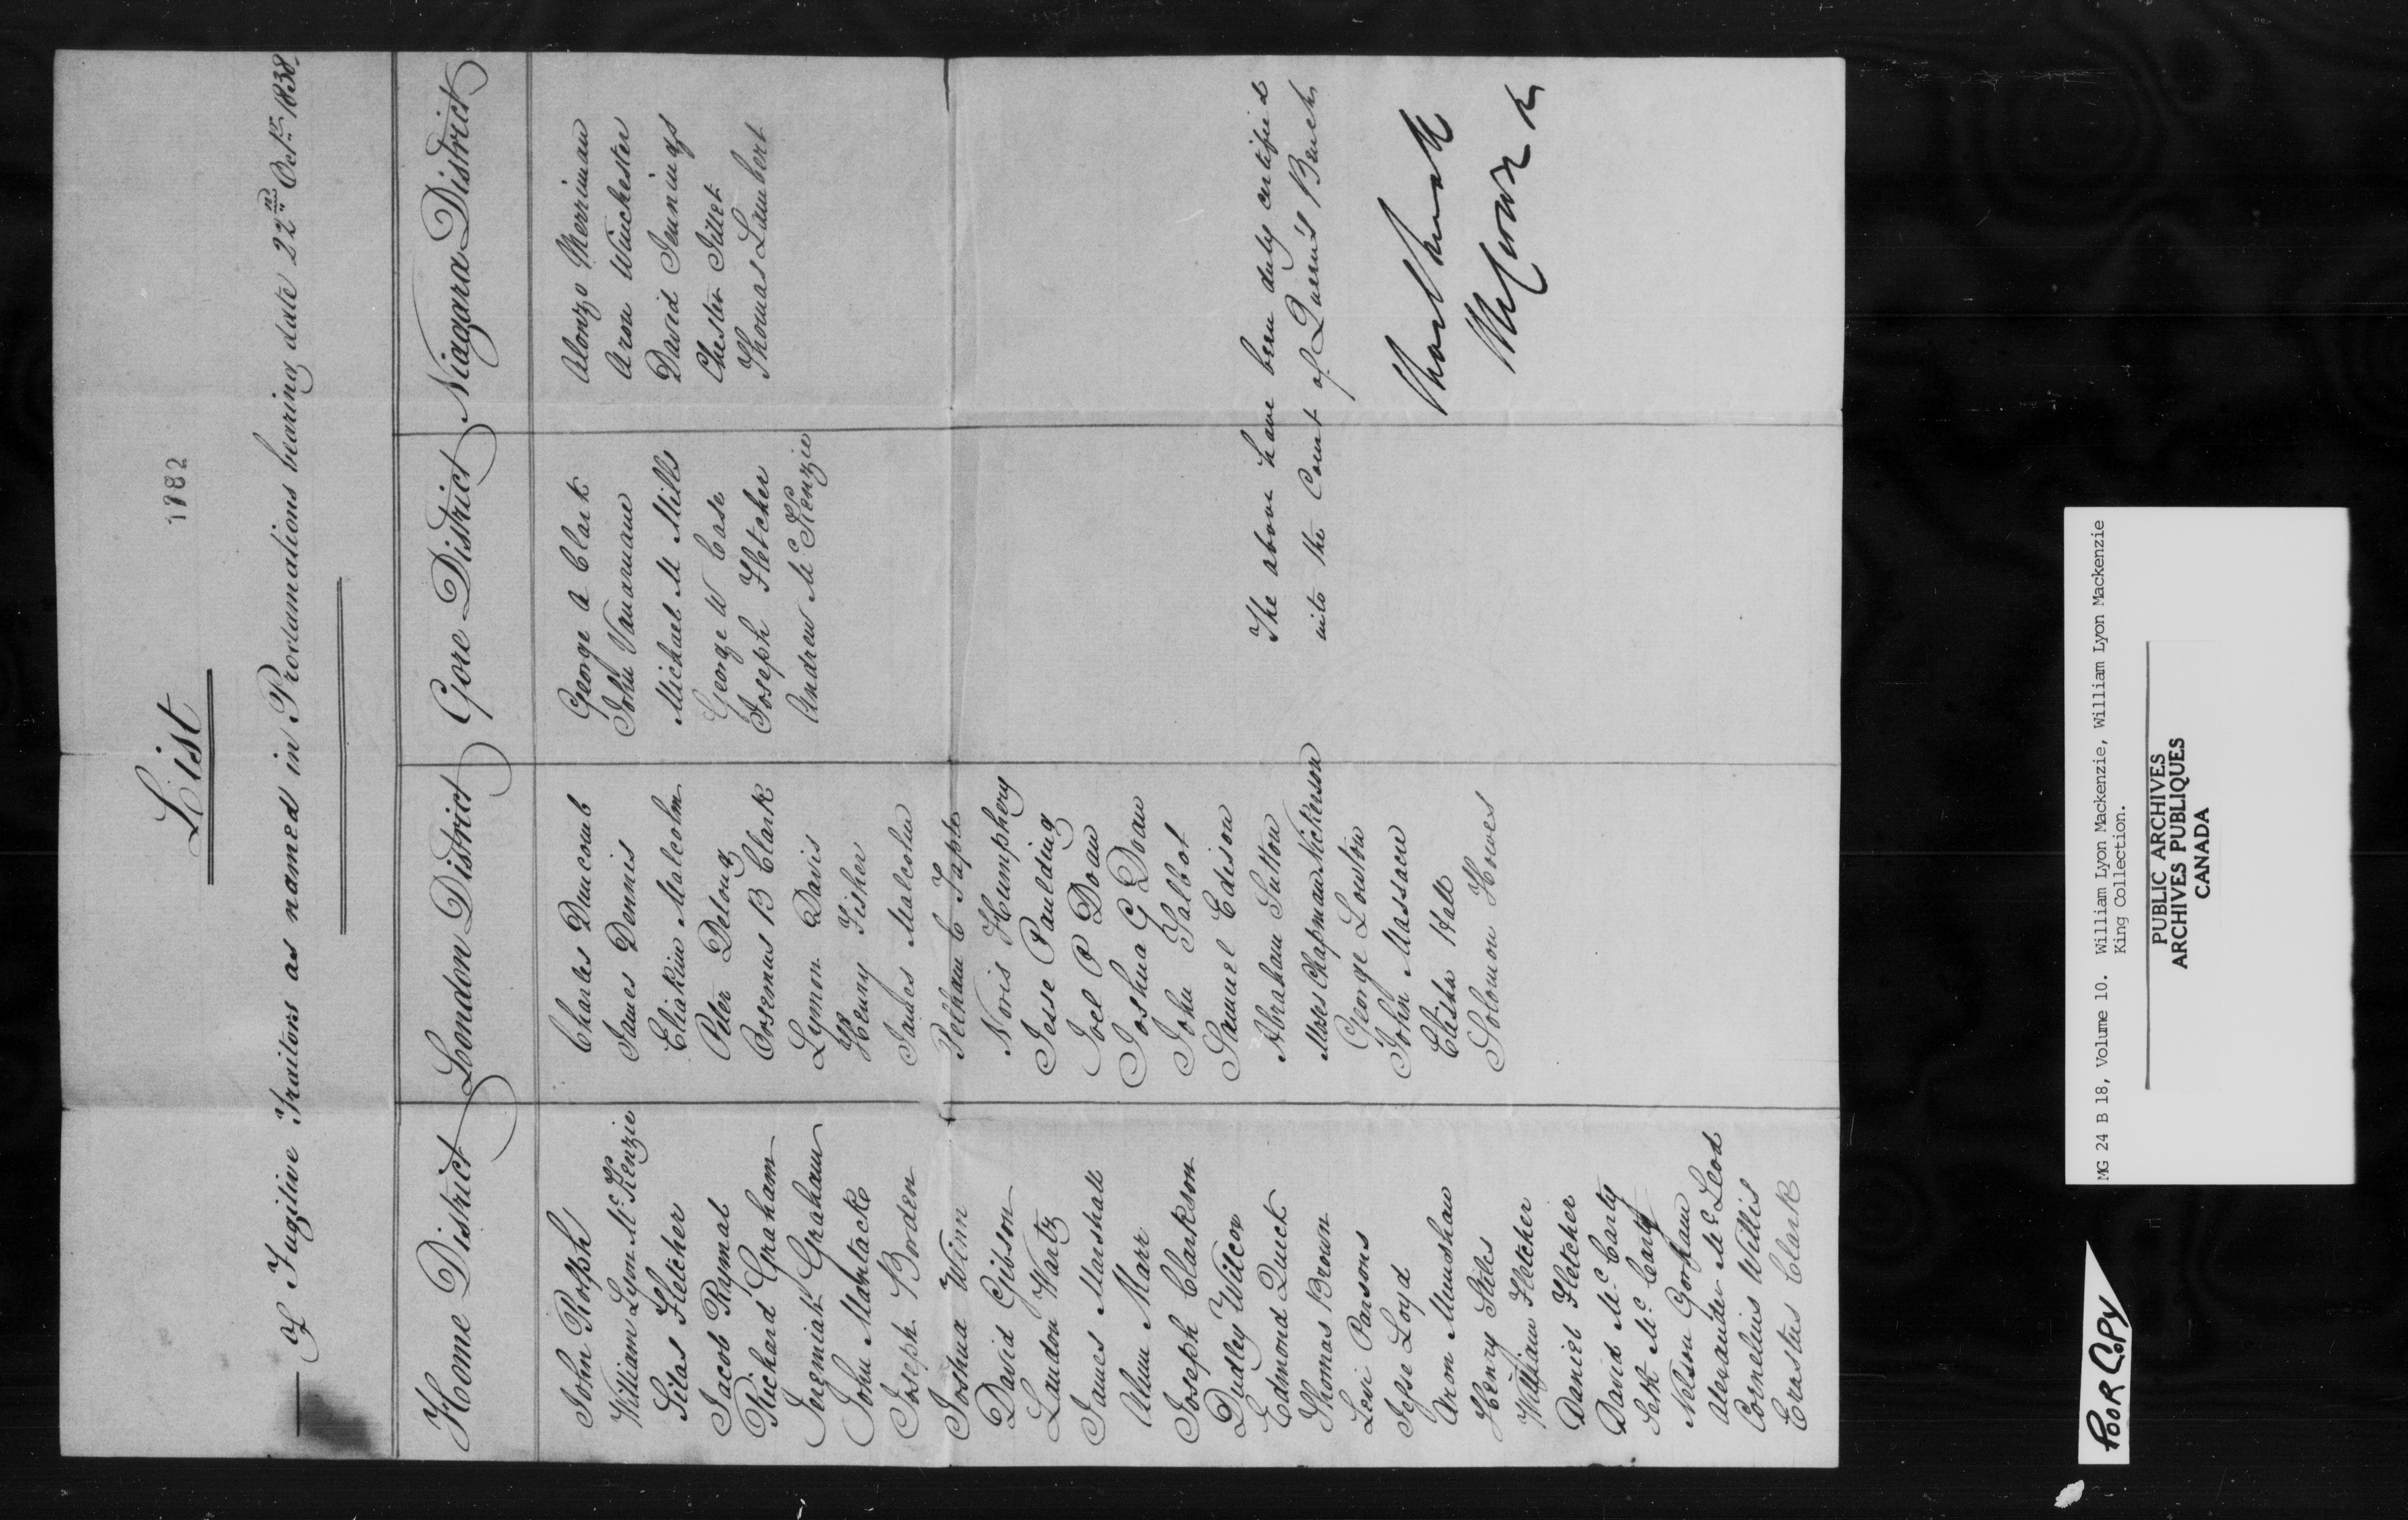 1782
List
Of Fugitive Traitors as named in Proclamations bearing date 22nd Octr. 1838.
Home District
John Rolph
William Lyon McKenzie
Silas Fletcher
Jacob Rymal
Richard Graham
Jeremiah Graham
John Mantack
Joseph Borden
Joshua Winn
David Gibson
Landon Wartz
James Marshall
Alum Marr
Joseph Clarkson
Dudley Wilcox
Edmond Quick
Thomas Brown
Levi Parsons
Jesse Loyd
Aron Munshaw
Henry Stiles
William Fletcher
Daniel Fletcher
David McCarty
Seth McCarty
Nelson Gorham
Alexander McLeod
Cornelius Willis
Erastus Clark
London District
Charles Duncomb
James Dennis
Eliakim Malcolm
Peter Delong
Orsemus B Clark
Lymon Davis
Henry Fisher
James Malcolm
Pelham C Tapp
Noris Humphery
Jesse Paulding
Joel P Doan
Joshua G Doan
John Talbot
Samuel Edison
Abraham Sutton
Moses Chapman Nickerson
George Lowton
John Massacw
Elisha Hall
Solomon Howes
Gore District
George A Clark
John Vanarnam
Michael M Mills
George W Case
Joseph Fletcher
Andrew McKenzie
Niagara District
Alonzo Merriman
Aron Winchester
David Jennings
Chester Jillet
Thomas Lambert
The above have been duly certified
into the Court of Queen's Bench
MG 24 B 18, Volume 10. William Lyon Mackenzie, William Lyon Mackenzie
King Collection.
PUBLIC ARCHIVES
ARCHIVES PUBLIQUES
CANADA
POOR COPY